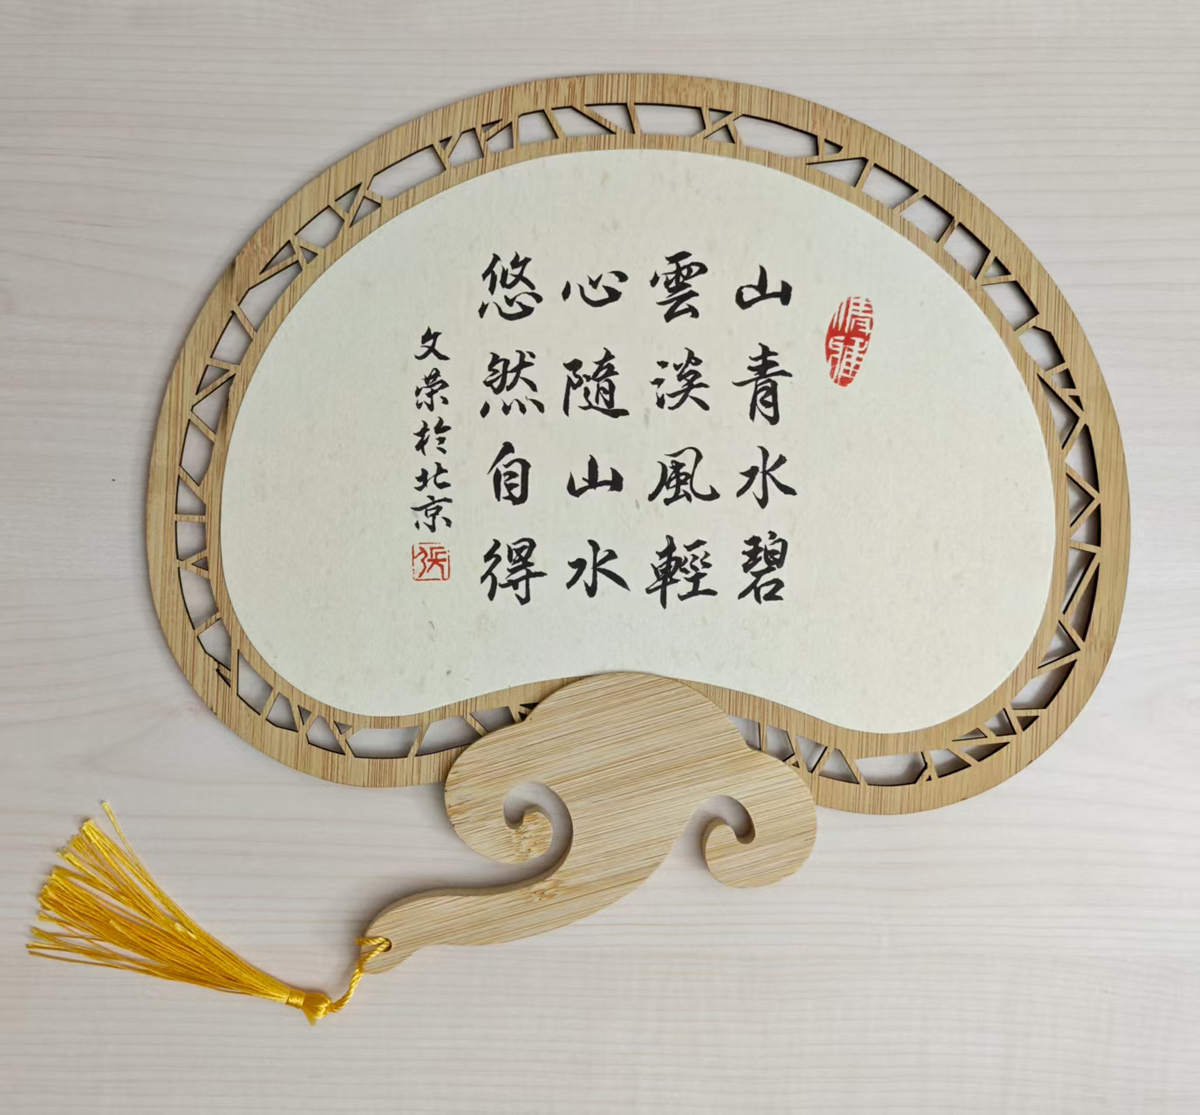 山青水碧
雲淡風輕
心隨山水
悠然自得
文荣於北京